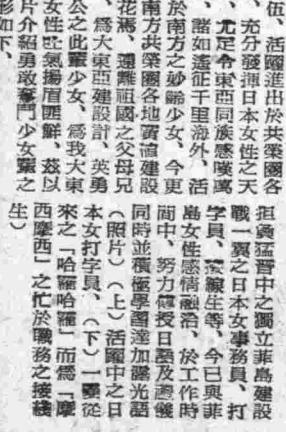 伍、活躍進出於共榮圈各
、充分發揮日本女性之天
、尤足令東亞同族感嘆萬
、諸如遙征千里海外、活
於南方之妙齡少女、今更
南方共榮圈各地實值建設
花焉、遠離祖國之父母兄
、爲大東亞建設計、英勇
公之此輩少女、爲我大東
女性吐氣揚眉匪鮮、茲以
片介紹勇敢奮鬥少女輩之
形如下、
担負猛晉中之獨立菲島建設
戰一翼之日本女事務員、打
學員、接線生等、今已與菲
島女性感情融洽、於工作時
間中、努力傳授日語及禮儀
同時並積極學習達加羅光語
(照片)(上)活躍中之日
本女打字員、(下)一躍從
來之「哈羅哈羅」而爲「摩
西摩西」之忙於職務之接綫
生)